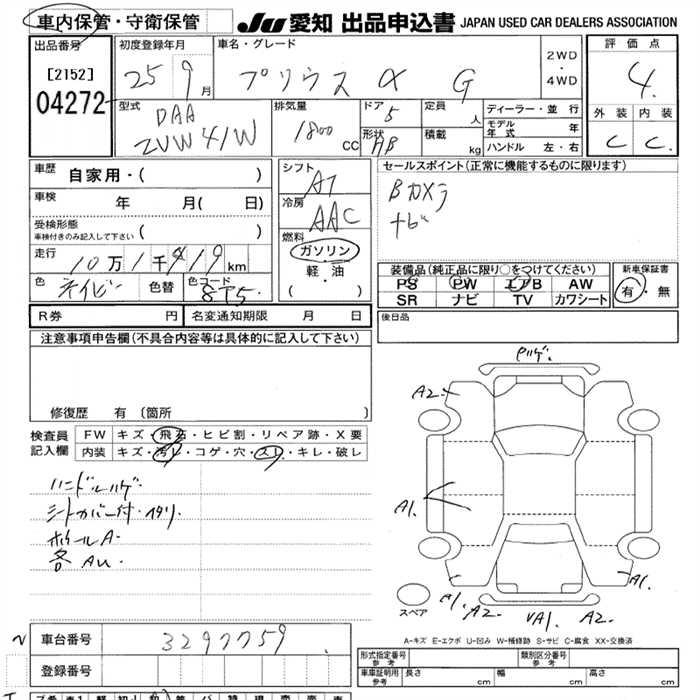 車内保管・守衛保管
JU 愛知 出品申込書 JAPAN USED CAR DEALERS ASSOCIATION
出品番号
[2152]
04272
初度登録年月
25 9月
車名・グレード
プリウス α G
2WD
・
4WD
評価点
4
型式
DAA
ZVW41W
排気量
1800 cc
ドア
5
形状
HB
定員
人
積載
kg
ディーラー・並行
モデル年式 年
ハンドル 左・右
外装 内装
C C
車歴
自家用・( )
車検
年 月( 日)
受検形態
車検付きのみ記入して下さい ( )
走行
10万1千419km
色
ネイビー
色替
色コード
8T5
シフト
AT
冷房
AAC
燃料
ガソリン
・
軽・油
( )
セールスポイント(正常に機能するものに限ります)
Bカメラ
ナビ
装備品(純正品に限り○をつけてください)
PS PW エアB AW
SR ナビ TV カワシート
新車保証書
有・無
R券 円 名変通知期限 月 日
後日品
注意事項申告欄(不具合内容等は具体的に記入して下さい)
修復歴 有 〔箇所 〕
検査員
記入欄
FW キズ・飛石・ヒビ割・リペア跡・X要
内装 キズ・汚レ・コゲ・穴・スレ・キレ・破レ
ハンドルハゲ
シートカバー付・
ホイールA
各AU
ハゲ
A2
A1
A1
A1
A2
VA1
A2
スペア
A-キズ E-エクボ U-凹み W-補修跡 S-サビ C-腐食 XX-交換済
車台番号
3297759
登録番号
形式指定番号
参考
類別区分番号
参考
車庫証明用
参考
長さ cm 幅 cm 高さ cm